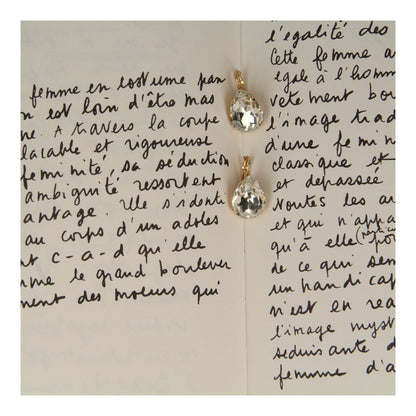 femme en costume pan
n est loin d'être mas
ne. A travers la coupe
lacable et rigoureuse
feminité, sa séduction
ambiguité ressortent
antage. Elle s'identi
au corps d'un adoles
nt c-a-d qu'elle
me le grand boulever
ment des moeurs qui
l'égalité des
Cette femme a
égale à l'homm
vetement bou
l'image trad
d'une femin
classique et
et depassée
toutes les ar
et qui n'appa
qu'à elle pou
de ce qui sem
un handicap
n'est en rea
l'image myst
seduisante d
femme d'a